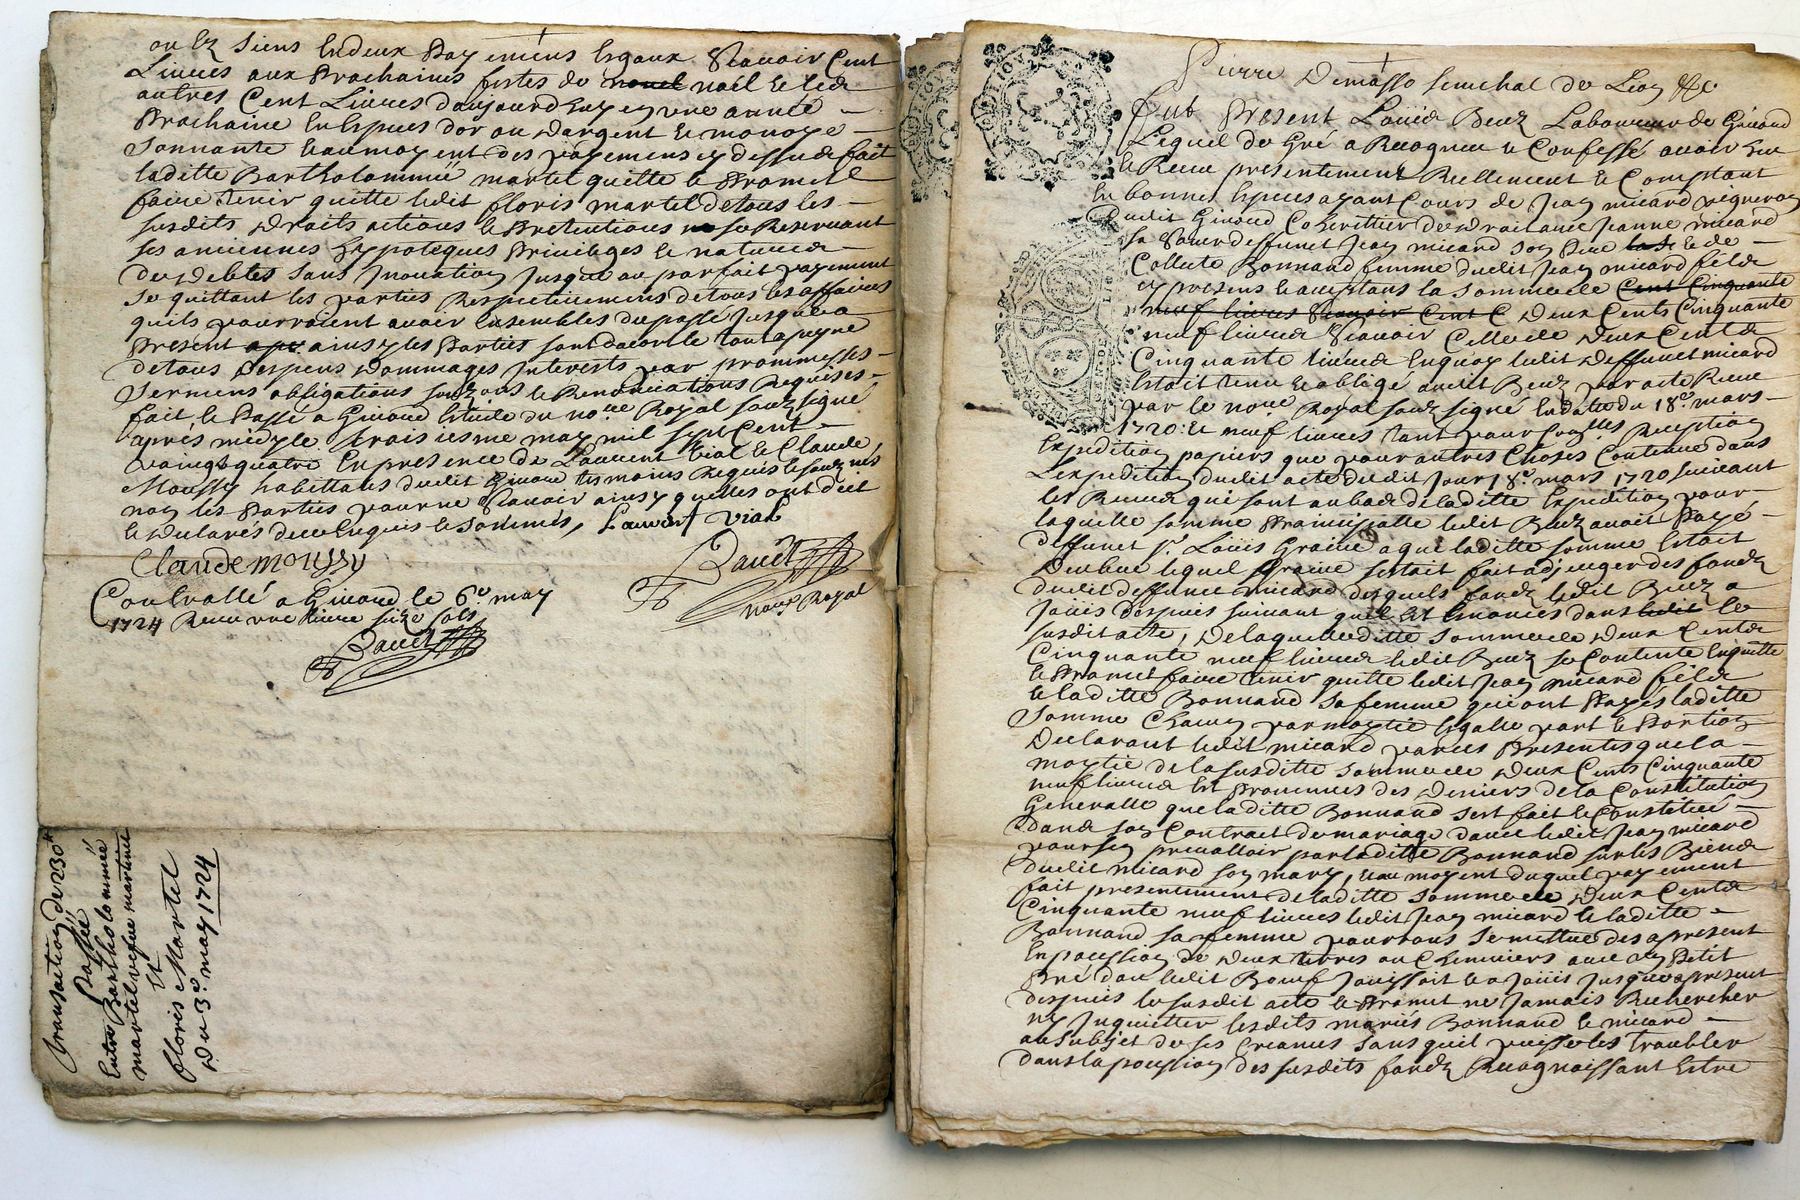 ou les siens en deux payemens egaux scavoir cent
Livres aux Prochaines festes de nouel noël et les
autres Cent Livres d'aujourd'huy en une année
Prochaine en Especes d'or ou d'argent et monoye
Sonnante et aumoyent des payemens cy dessus fait
laditte Bartholommie martel quitte et Promet
faire tenir quitte ledit floris martel de tous les
susdits droits actions et Pretentions se Reservant
ses anciennes hypoteques Privileges et nature
de debtes sans Jnovation Jusque au parfait payement
Se quittant les parties Respectivement de tous les affaires
quils pourroient avoir Ensembles du passé Jusque a
Present ainsy les Parties sont d'acord et tout a peyne
de tous despens dommages Interests par prommesses
Sermens obligations soubz et Renonciations Requises
fait et Passé a Givord Estude du no.re Royal soubz signé
apres midy le troisiesme may mil sept cent
vaingt quatre En presence de Laurent vial et Claude
Moussy habittans dudit Givord tesmoins Requis et soubz signés
non les Parties pour ne scavoir ainsy quelles ont dit
et declarés de ce Enquis et sommés, Laurent vial
Claude moussy
Controllé a Givord le 6.e may
1724 Receu une livre seize sols
no.re Royal
transaction de 230 #
Passée
Entre Bartholommée
martel vefue
Et
floris Martel
du 3.e may 1724
Pierre Demasso senechal de Lion &c
fut Present Loüis Beuz Laboureur de Givord
Lequel de Gré a Recogneu et Confessé avoir heu
et Receu presentement Reellement et Comptant
En bonnes Especes ayant Cours de Jean micard vigneron
dudit Givord Coheritier de droit avec Jeanne micard
sa soeur deffunct Jean micard son Pere et de
Collette Bonnand femme dudit Jean micard fils
cy presens et acceptans la somme de Cent Cinquante
neuf livres Scavoir Cent C Deux Cents Cinquante
neuf livres Scavoir Celle de Deux Cents
Cinquante livres Enquoy ledit deffunct micard
Estait tenu et obligé audit Beuz par acte Receu
par le no.re Royal soubz signé En datte du 18.e mars
1720 Et neuf livres tant pour Reception
Expedition papiers que pour autres Choses Contenue dans
L'expedition dudit acte dudit Jour 18.e mars 1720 suivant
les Receus qui sont au bas de laditte Expedition pour
laquelle somme Prinsipalle ledit Beuz avoit Payé
deffunct s.r Loüis Graine a que laditte somme Estoit
Deuhue lequel Graine sestoit fait adjuger des fonds
dudit deffunct micard desquels fonds ledit Beuz a
Joüis despuis suivant quil Est Enoncés dans ledit le
susdit acte, De laquelle ditte somme de Deux Cents
Cinquante neuf livres ledit Beuz se Contente En quitte
et Promet faire tenir quitte ledit Jean micard fils
et laditte Bonnand sa femme qui ont Payés laditte
Somme Chacun par moytié Egalle part et Portion
Declarant ledit micard par ces Presentes que la
moytié de la susditte somme de Deux Cents Cinquante
neuf livres Est Provenues des Deniers de la Constitution
Generalle que laditte Bonnand sest fait et Constitué
dans son Contrait de mariage avec ledit Jean micard
pour sen prevalloir par laditte Bonnand sur les Biens
dudit micard son mary, et au moyent duquel payement
fait presentement de laditte somme de Deux Cents
Cinquante neuf livres ledit Jean micard et laditte
Bonnand sa femme pourrons se mettre des apresent
En possession de Deux terres ou Chenniers avec un Petit
Pré dont ledit Jouissoit et a Joüit Jusques apresent
despuis le susdit acte et Promet ne Jamais Rechercher
ny Inquietter lesdits mariés Bonnand et micard
au Subjet de ses Creances sans quil puisse les troubler
dans la possession des susdits fonds Recognoissant Estre